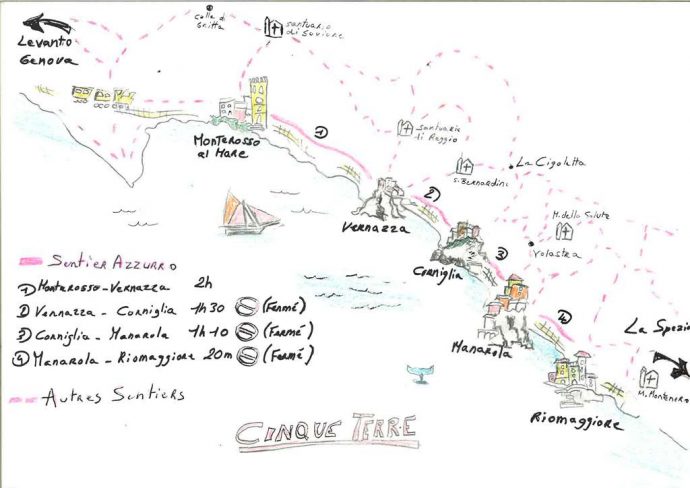 Levanto
Genova
Colla di
Gritta
santuario
di Soviore
Monterosso
al Mare
1
santuario
di Reggio
La Cigoletta
S. Bernardino
Vernazza
2
M. della Salute
Volastra
Corniglia
3
Sentier Azzurro
1 Monterosso - Vernazza 2h
2 Vernazza - Corniglia 1h30 (Fermé)
3 Corniglia - Manarola 1h10 (Fermé)
4 Manarola - Riomaggiore 20m (Fermé)
Autres Sentiers
4
Manarola
La Spezia
M. Montenero
Riomaggiore
Cinque Terre